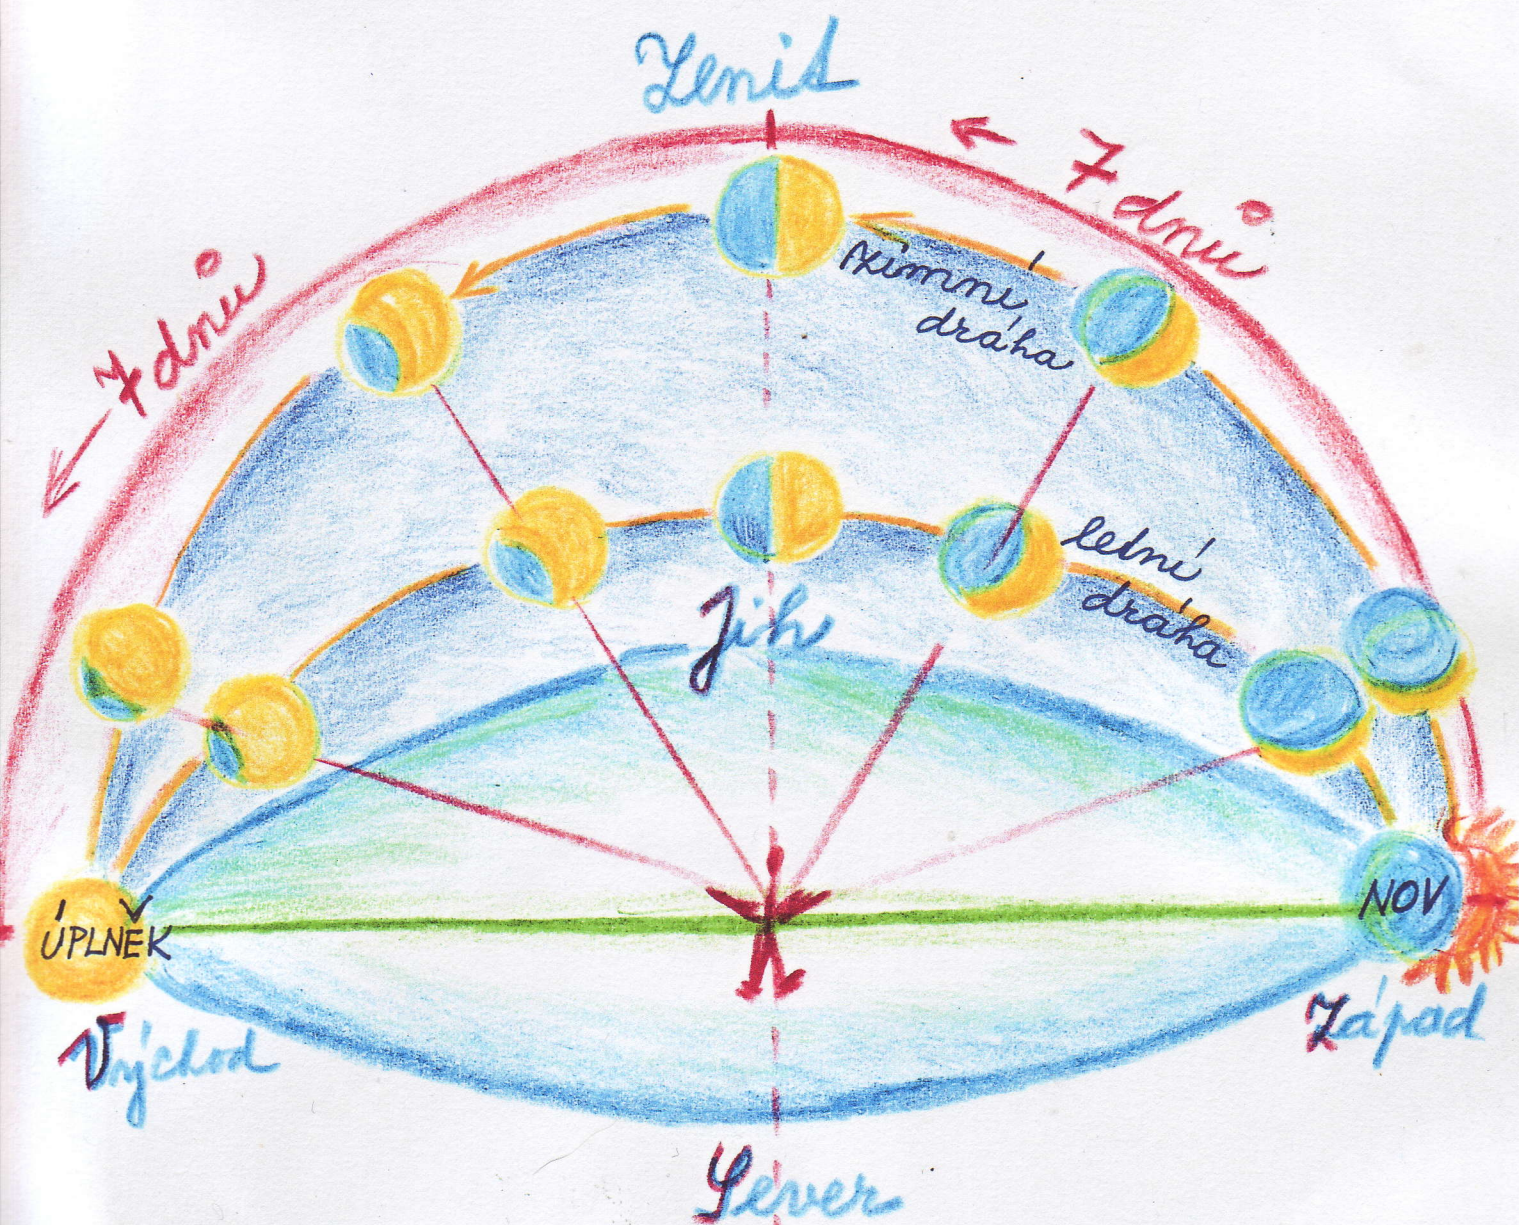 Zenit
7 dnů
7 dnů
zimní
dráha
letní
dráha
Jih
ÚPLNĚK
NOV
Východ
Západ
Sever